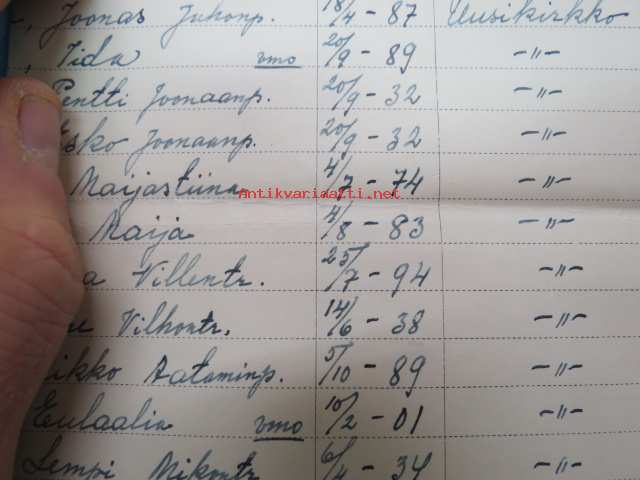 Joonas Juhonp. 18/4 - 87 Uusikirkko
Iida vmo 20/9 - 89 -"-
Pentti Joonaanp. 20/9 - 32 -"-
sko Joonaanp. 20/9 - 32 -"-
Maijastiina 4/7 - 74 -"-
antikvariaatti.net
Maija 4/8 - 83 -"-
a Villentr. 25/7 - 94 -"-
Vilhontr. 14/6 - 38 -"-
ikko Aataminp. 5/10 - 89 -"-
Eulaalia vmo 10/2 - 01 -"-
Lempi Mikontr 6/4 - 34 -"-